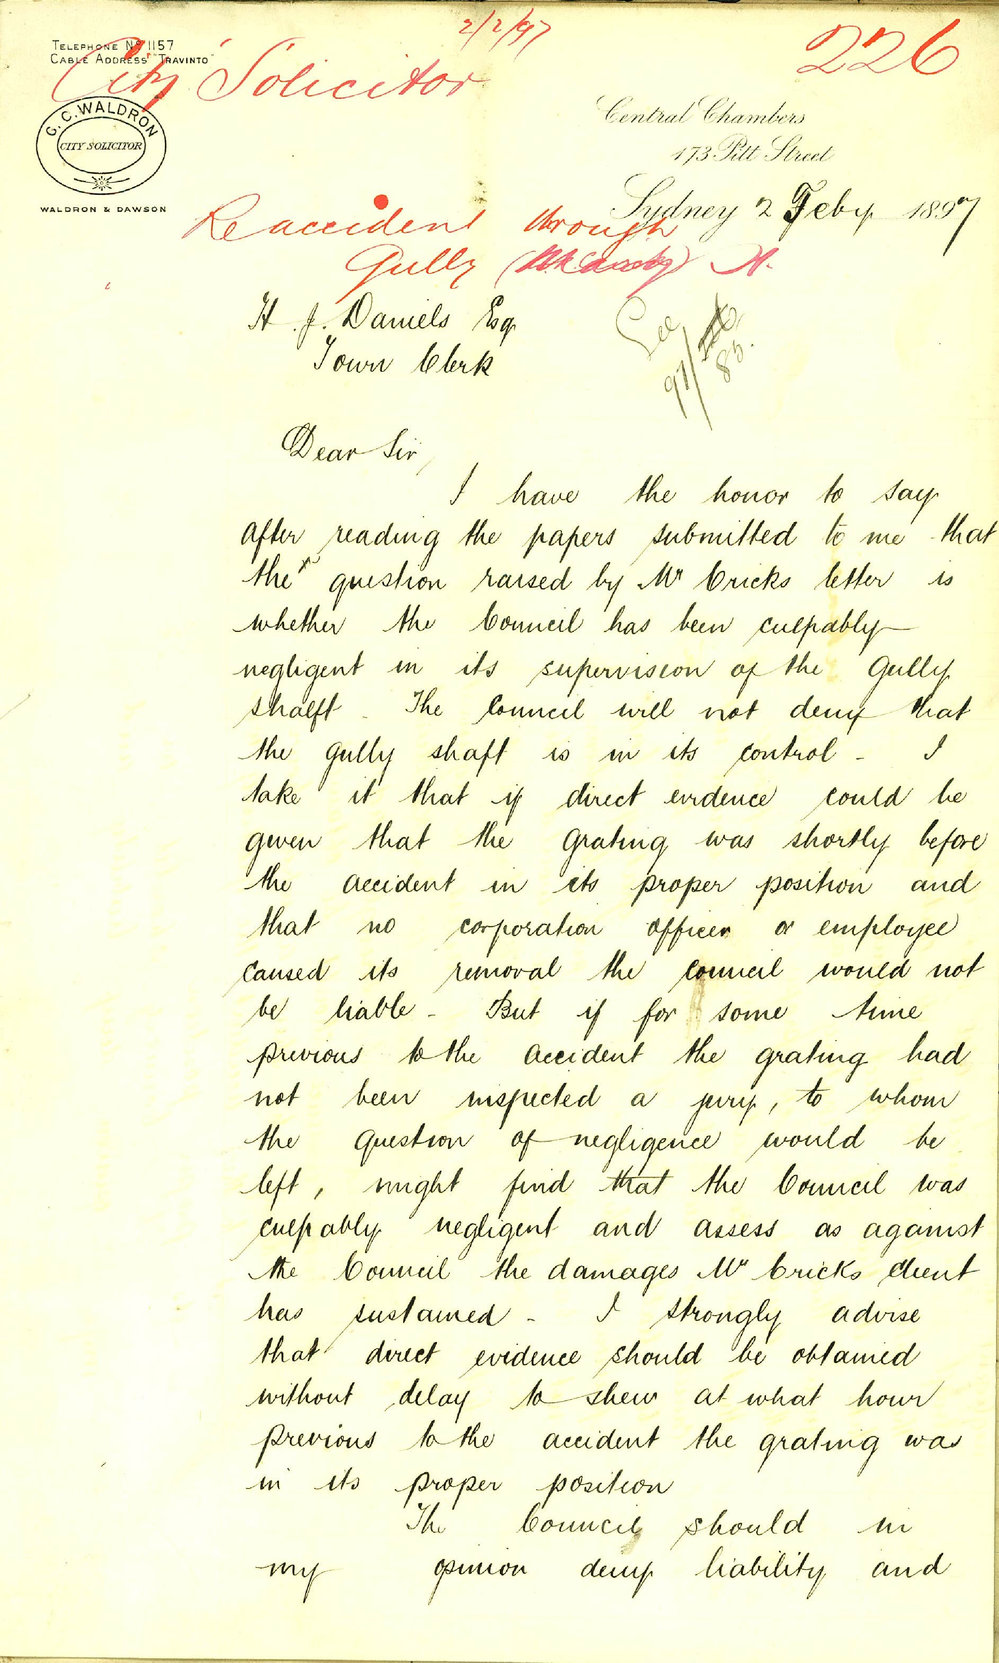 2/2/97
226
TELEPHONE No 1157
CABLE ADDRESS "TRAVINTO"
City Solicitor
G.C. WALDRON
CITY SOLICITOR
WALDRON & DAWSON
Central Chambers
173 Pitt Street
Sydney 2 Feby 1897
Re accident through
Gully St.
H. J. Daniels Esq
Town Clerk
See
97/
85.
Dear Sir,
I have the honor to say
after reading the papers submitted to me that
the question raised by Mr Cricks letter is
whether the Council has been culpably
negligent in its supervision of the Gully
shalft. The Council will not deny that
the gully shaft is in its control - I
take it that if direct evidence could be
given that the grating was shortly before
the accident in its proper position and
that no corporation officer or employee
caused its removal the Council would not
be liable - But if for some time
previous to the accident the grating had
not been inspected a jury, to whom
the question of negligence would be
left, might find that the Council was
culpably negligent and assess as against
the Council the damages Mr Cricks client
has sustained - I strongly advise
that direct evidence should be obtained
without delay to shew at what hour
previous to the accident the grating was
in its proper position
The Council should in
my opinion deny liability and